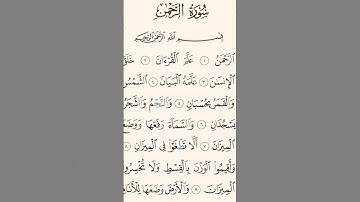 سُورَةُ الرَّحْمَٰنِ
بِسْمِ اللَّهِ الرَّحْمَٰنِ الرَّحِيمِ
الرَّحْمَٰنُ ١ عَلَّمَ الْقُرْءَانَ ٢ خَلَقَ
الْإِنسَٰنَ ٣ عَلَّمَهُ الْبَيَانَ ٤ الشَّمْسُ
وَالْقَمَرُ بِحُسْبَانٍ ٥ وَالنَّجْمُ وَالشَّجَرُ
يَسْجُدَانِ ٦ وَالسَّمَآءَ رَفَعَهَا وَوَضَعَ
الْمِيزَانَ ٧ أَلَّا تَطْغَوْا۟ فِى الْمِيزَانِ ٨
وَأَقِيمُوا۟ الْوَزْنَ بِالْقِسْطِ وَلَا تُخْسِرُوا۟
الْمِيزَانَ ٩ وَالْأَرْضَ وَضَعَهَا لِلْأَنَامِ